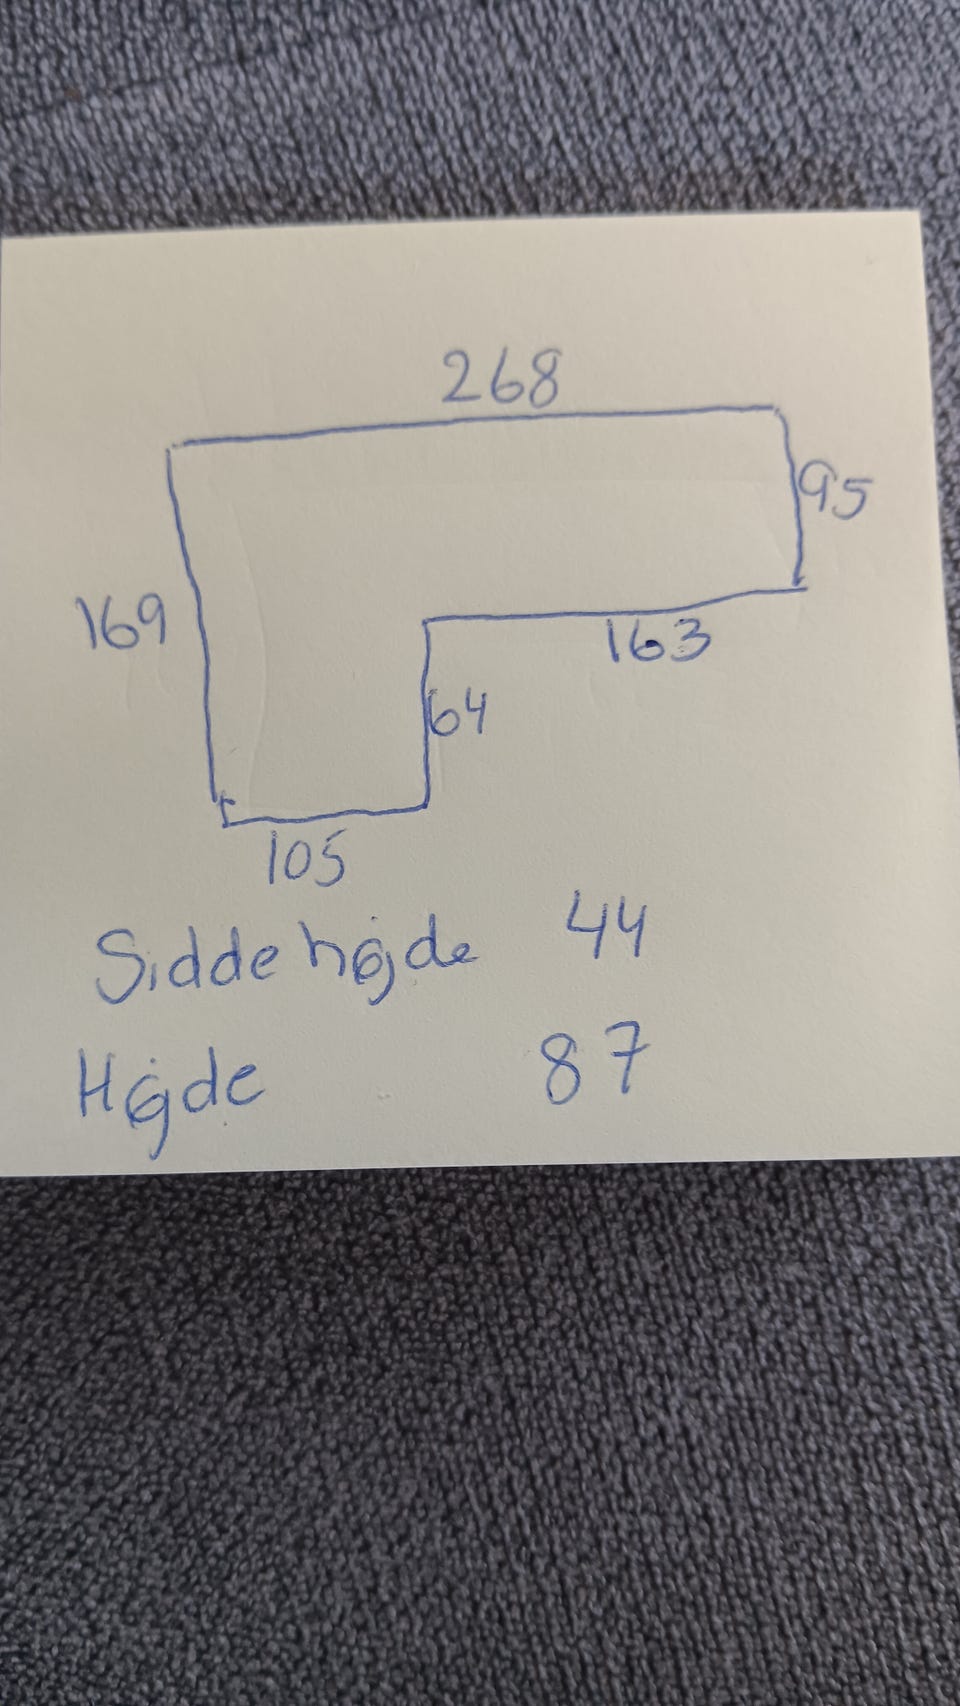 268
95
169
163
64
105
Siddehøjde 44
Højde 87